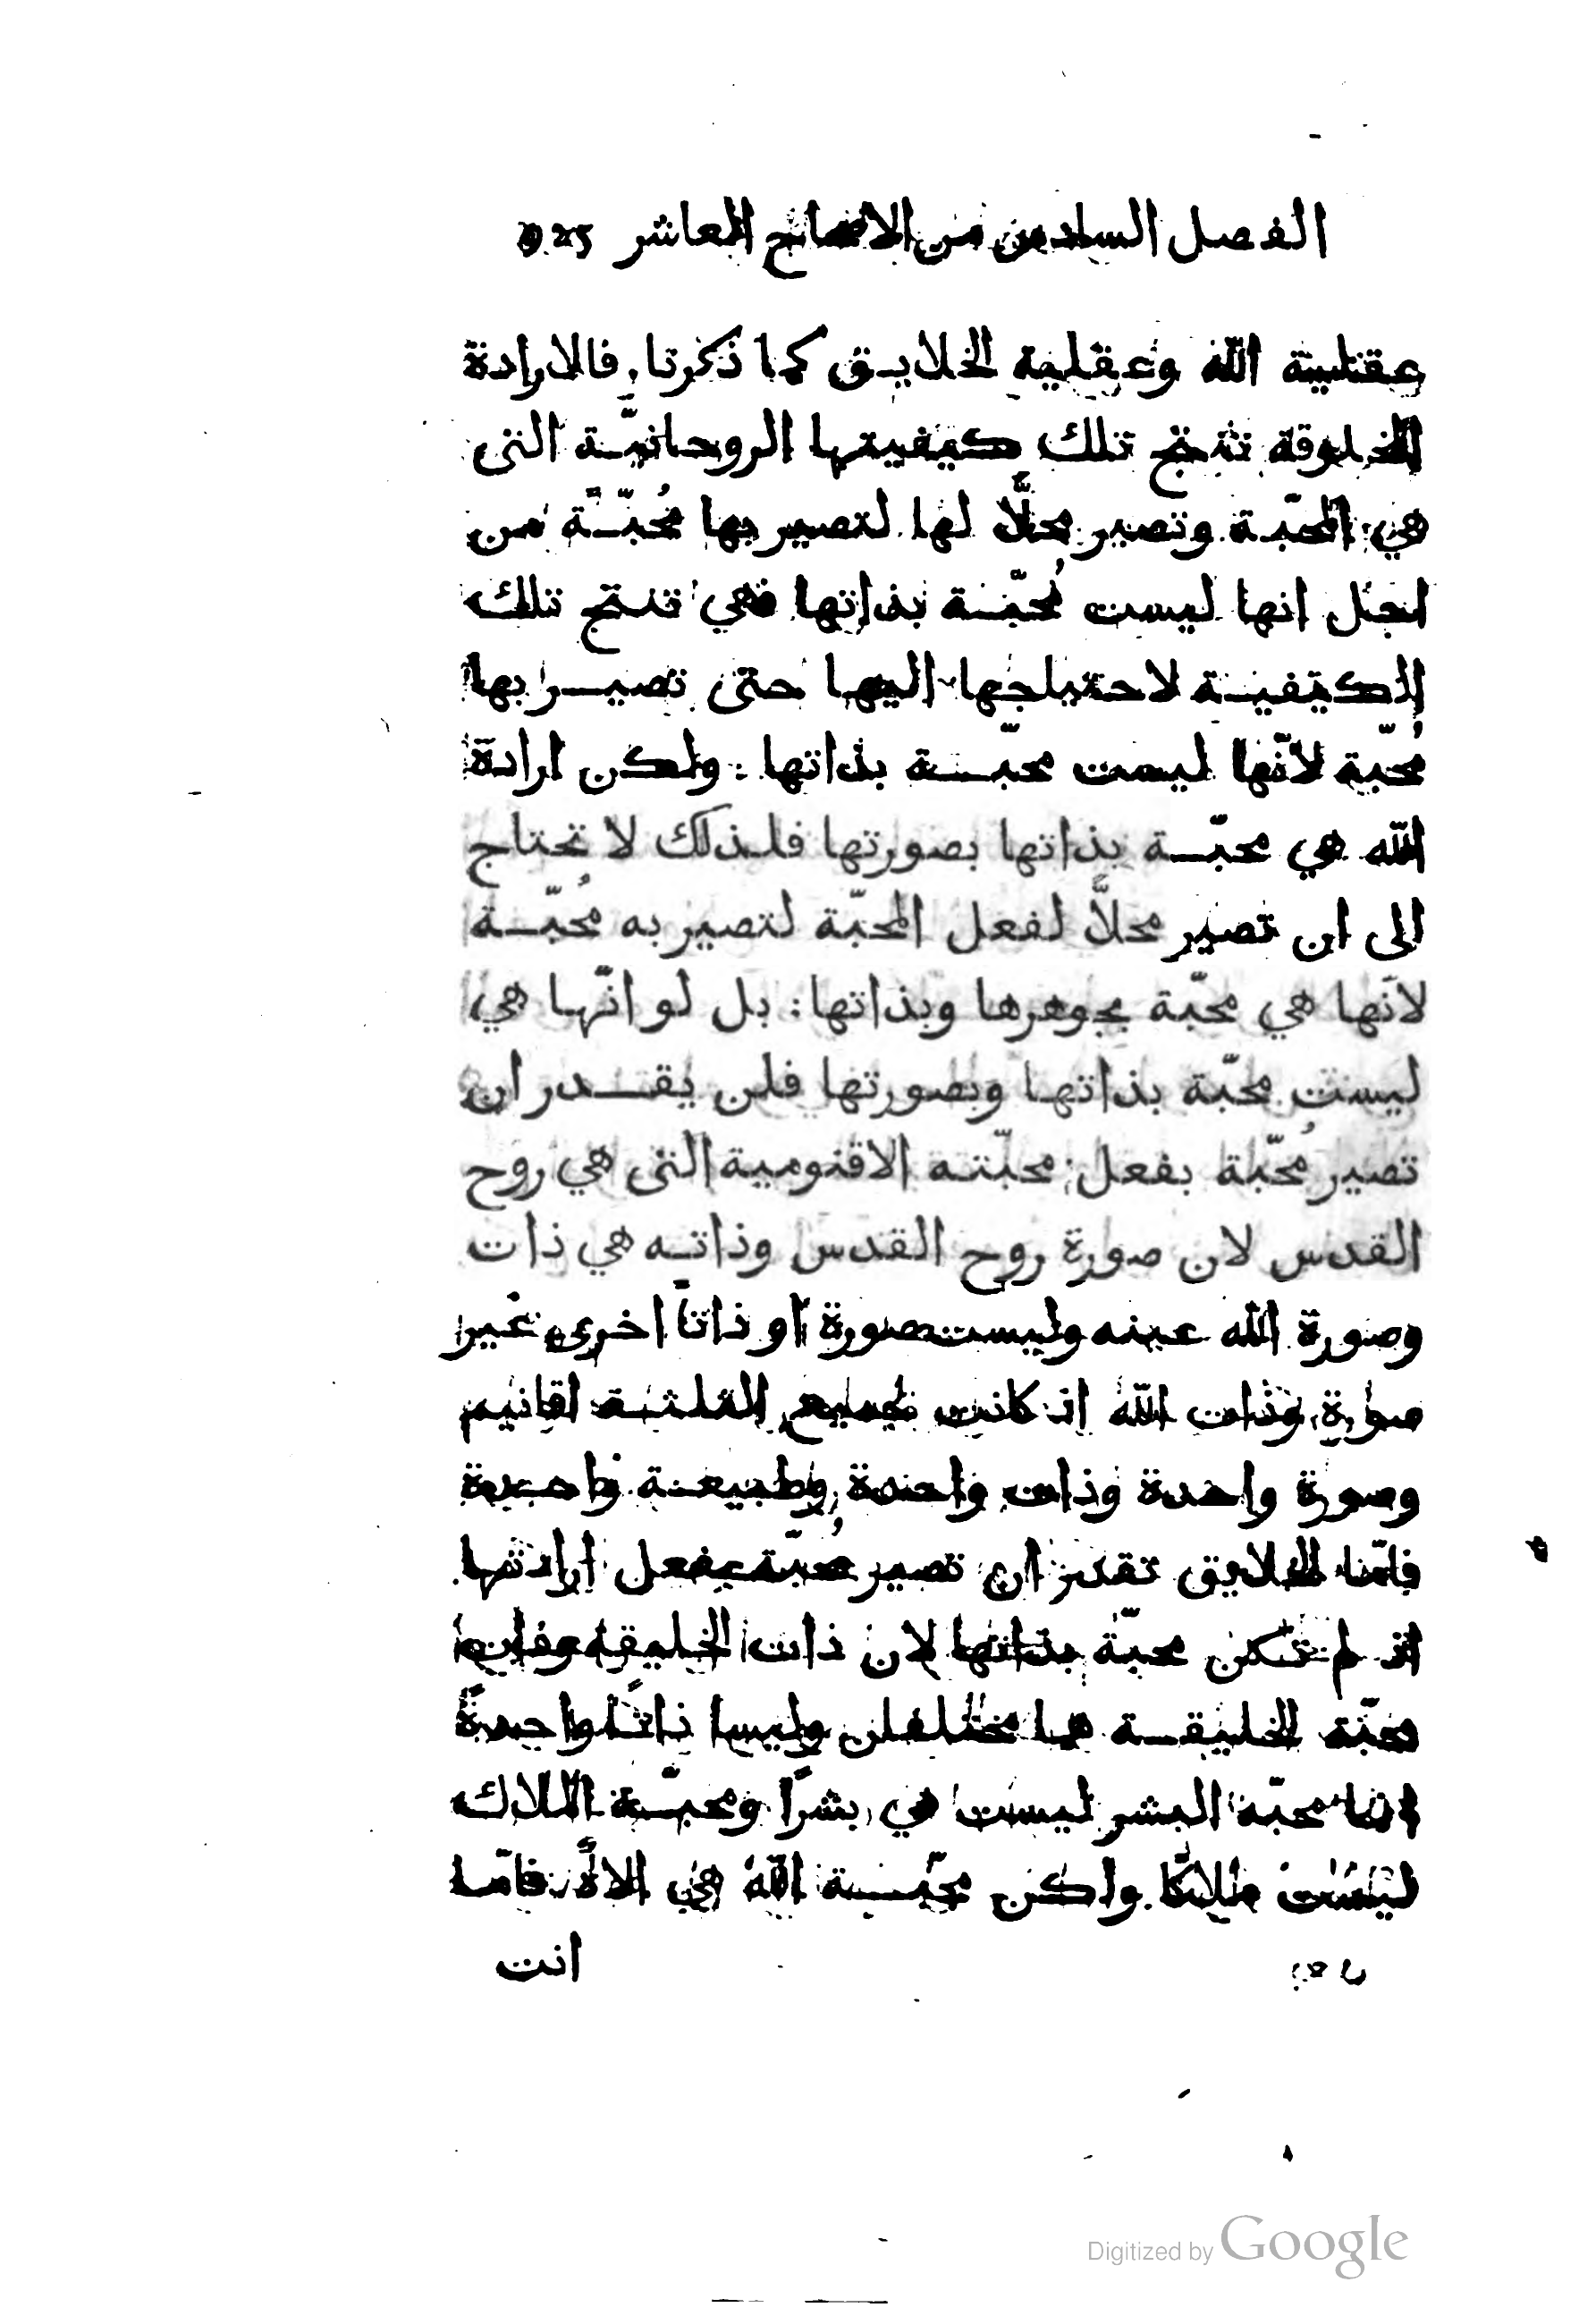 الفصل السادس من الاصحاح العاشر
عقلية الله وعقلية الخلايق كما ذكرنا. فالارادة
المخلوقة تنتج تلك كيفيتها الروحانيّة التى
هي المحبّة وتصير محلاًّ لها لتصير بها مُحبّةً من
اجل انها ليست مُحبّة بذاتها فهي تنتج تلك
الكيفية لاحتياجها اليها حتى تصير بها
مُحبّة لانّها ليست محبّة بذاتها . ولكن ارادة
الله هي محبّة بذاتها بصورتها فلذلك لا تحتاج
الى ان تصير محلاًّ لفعل المحبّة لتصير به مُحبّة
لانّها هي محبّة بجوهرها وبذاتها : بل لو انّها هي
ليست محبّة بذاتها وبصورتها فلن يقدر ان
تصير مُحبّة بفعل محبّته الاقنومية التى هي روح
القدس لان صورة روح القدس وذاته هي ذات
وصورة الله عينه وليست صورة او ذاتاً اخرى غير
صورة وذات الله اذ كانت لجميع الثلثة اقانيم
صورة واحدة وذات واحدة وطبيعة واحدة
فامّا الخلايق تقدر ان تصير مُحبّة بفعل ارادتها
اذ لم تكن محبّة بذاتها لان ذات الخليقه وذات
محبّة الخليقة هما مختلفان وليسا ذاتًا واحدةً
محبّة البشر ليست هي بشرًا ومحبّة الملاك
ليست ملاكًا ولكن محبّة الله هي الاهً فامّا
انت
Digitized by Google